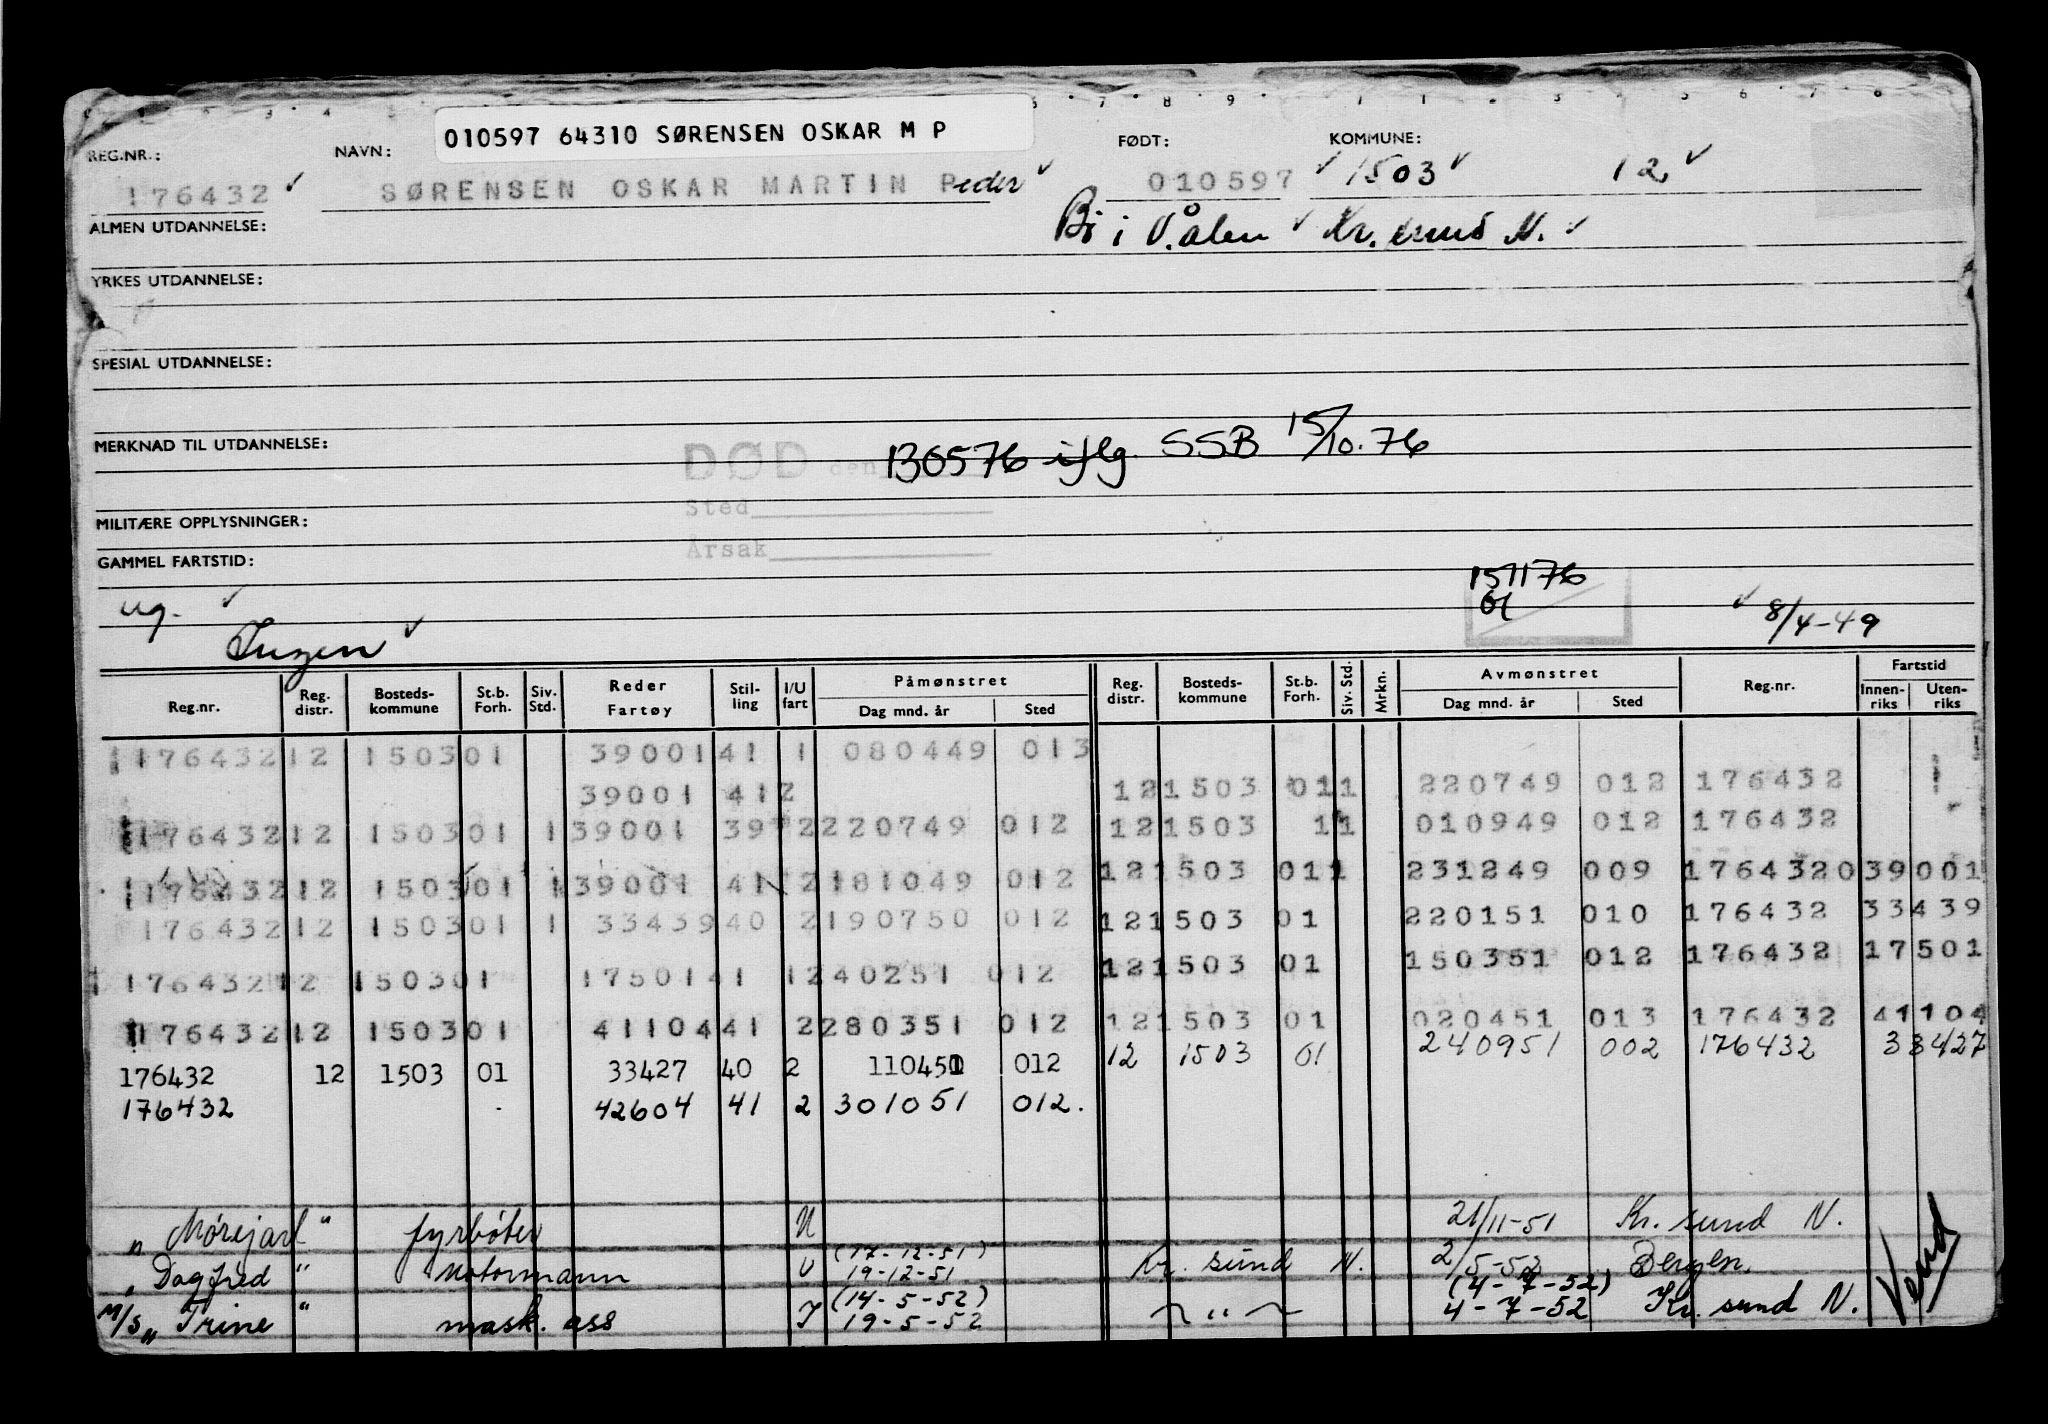 010597 64310 SØRENSEN OSKAR M P
REG.NR.: NAVN: FØDT: KOMMUNE:
176432 SØRENSEN OSKAR MARTIN Peder 010597 1503 12
ALMEN UTDANNELSE: i Vålen Kr. sund N.
YRKES UTDANNELSE:
SPESIAL UTDANNELSE:
MERKNAD TIL UTDANNELSE:
DØD den 130576 iflg. SSB 15/10.76
Sted
MILITÆRE OPPLYSNINGER:
Årsak
GAMMEL FARTSTID:
151176
ug. 8/4-49
Ingen
Reg.nr. Reg. distr. Bosteds- kommune St.b. Forh. Siv. Std. Reder Fartøy Stil- ling I/U fart Påmønstret Dag mnd. år Sted Reg. distr. Bosteds- kommune St.b. Forh. Siv. Std. Mrkn. Avmønstret Dag mnd. år Sted Reg.nr. Fartstid Innen- riks Uten- riks
176432 12 1503 01 39001 41 1 080449 013
39001 41 2 12 1503 01 1 220749 012 176432
176432 12 1503 01 1 39001 39 2 220749 012 12 1503 1 1 010949 012 176432
176432 12 1503 01 1 39001 41 2 181049 012 12 1503 01 1 231249 009 176432 0 39001
176432 12 1503 01 1 33439 40 2 190750 012 12 1503 01 220151 010 176432 33439
176432 12 1503 01 17501 41 1 240251 012 12 1503 01 150351 012 176432 17501
176432 12 1503 01 41104 41 2 280351 012 12 1503 01 020451 013 176432 41104
176432 12 1503 01 33427 40 2 110451 012 12 1503 01 240951 002 176432 33427
176432 42604 41 2 301051 012.
"Mørejarl" fyrbøter U 21/11-51 Kr. sund N.
"Dagfred" Motormann U (17-12-51) 19-12-51 Kr. sund N. 2/5-52 Bergen.
M/S "Trine" mask. ass I (14-5-52) 19-5-52 ~ " ~ (4-7-52) 4-7-52 Kr. sund N.
Vend